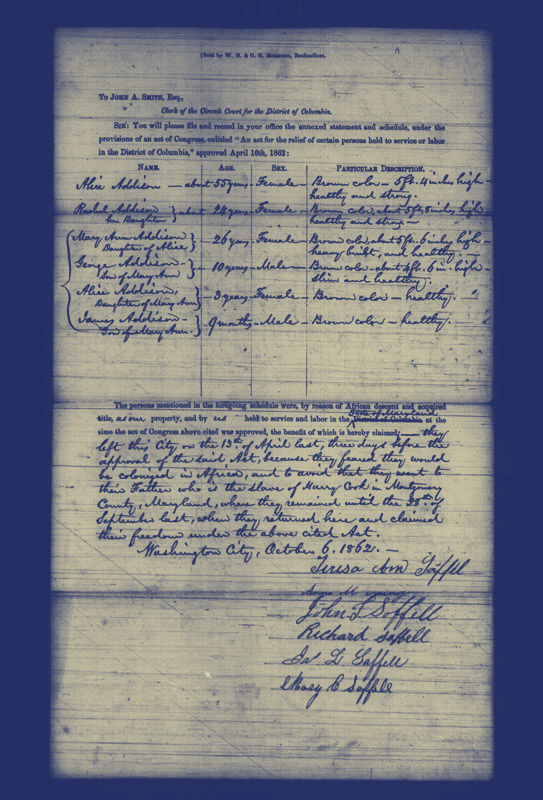 [Sold by W. H. & O. H. Morrison, Booksellers.
To John A. Smith, Esq.,
Clerk of the Circuit Court for the District of Columbia.
Sir: You will please file and record in your office the annexed statement and schedule, under the
provisions of an act of Congress, entitled "An act for the relief of certain persons held to service or labor
in the District of Columbia," approved April 16th, 1862:
Name. Age. Sex. Particular Description.
Alice Addison — about 55 years — Female — Brown color — 5 ft. 4 inches high —
healthy and strong.
Rachel Addison } about 24 years — Female — Brown color, about 5 ft, 5 inches high,
her Daughter healthy and strong —
Mary Ann Addison } — 26 years — Female — Brown color, about 5 ft. 6 inches high —
Daughter of Alice heavy built, and healthy —
George Addison — } — 10 years — Male — Brown color — about 4 ft. 6 in. high —
Son of Mary Ann slim and healthy.
Alice Addison, } — 3 years — Female — Brown color — healthy. "
Daughter of Mary Ann
James Addison — } — 9 months — Male — Brown color — healthy. "
Son of Mary Ann.
The persons mentioned in the foregoing schedule were, by reason of African descent and acquired
State of Maryland
title, as our property, and by us held to service and labor in the District of Columbia at the
time the act of Congress above cited was approved, the benefit of which is hereby claimed; — they
left this City on the 13th of April last, three days before the
approval of the said Act, because they feared they would
be colonized in Africa, and to avoid that they went to
their Father who is the slave of Harry Cook in Montgomery
County, Maryland, where they remained until the 25th of
September last, when they returned here and claimed
their freedom under the above cited Act.
Washington City, October 6. 1862. —
Teresa Ann Soffell
John L Soffell
Richard Soffell
Jas L Soffell
Mary C Soffell